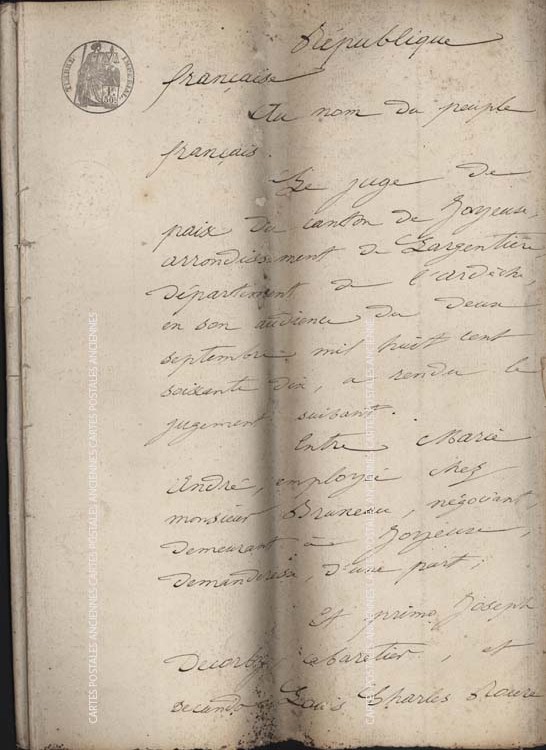 TIMBRE IMPÉRIAL
République
française
Au nom du peuple
français.
Le juge de
paix du canton de Joyeuse,
arrondissement de Largentière,
département de l'ardèche,
en son audience du deux
septembre mil huit cent
soixante dix, a rendu le
jugement suivant.
Entre Marie
André, employée chez
monsieur Bruneau, négociant,
demeurant à Joyeuse,
demanderesse, d'une part;
Et primo, Joseph
cabaretier, et
secundo Louis Charles
CARTES POSTALES ANCIENNES CARTES POSTALES ANCIENNES CARTES POSTALES ANCIENNES
CARTES POSTALES ANCIENNES CARTES POSTALES ANCIENNES CARTES POSTALES ANCIENNES